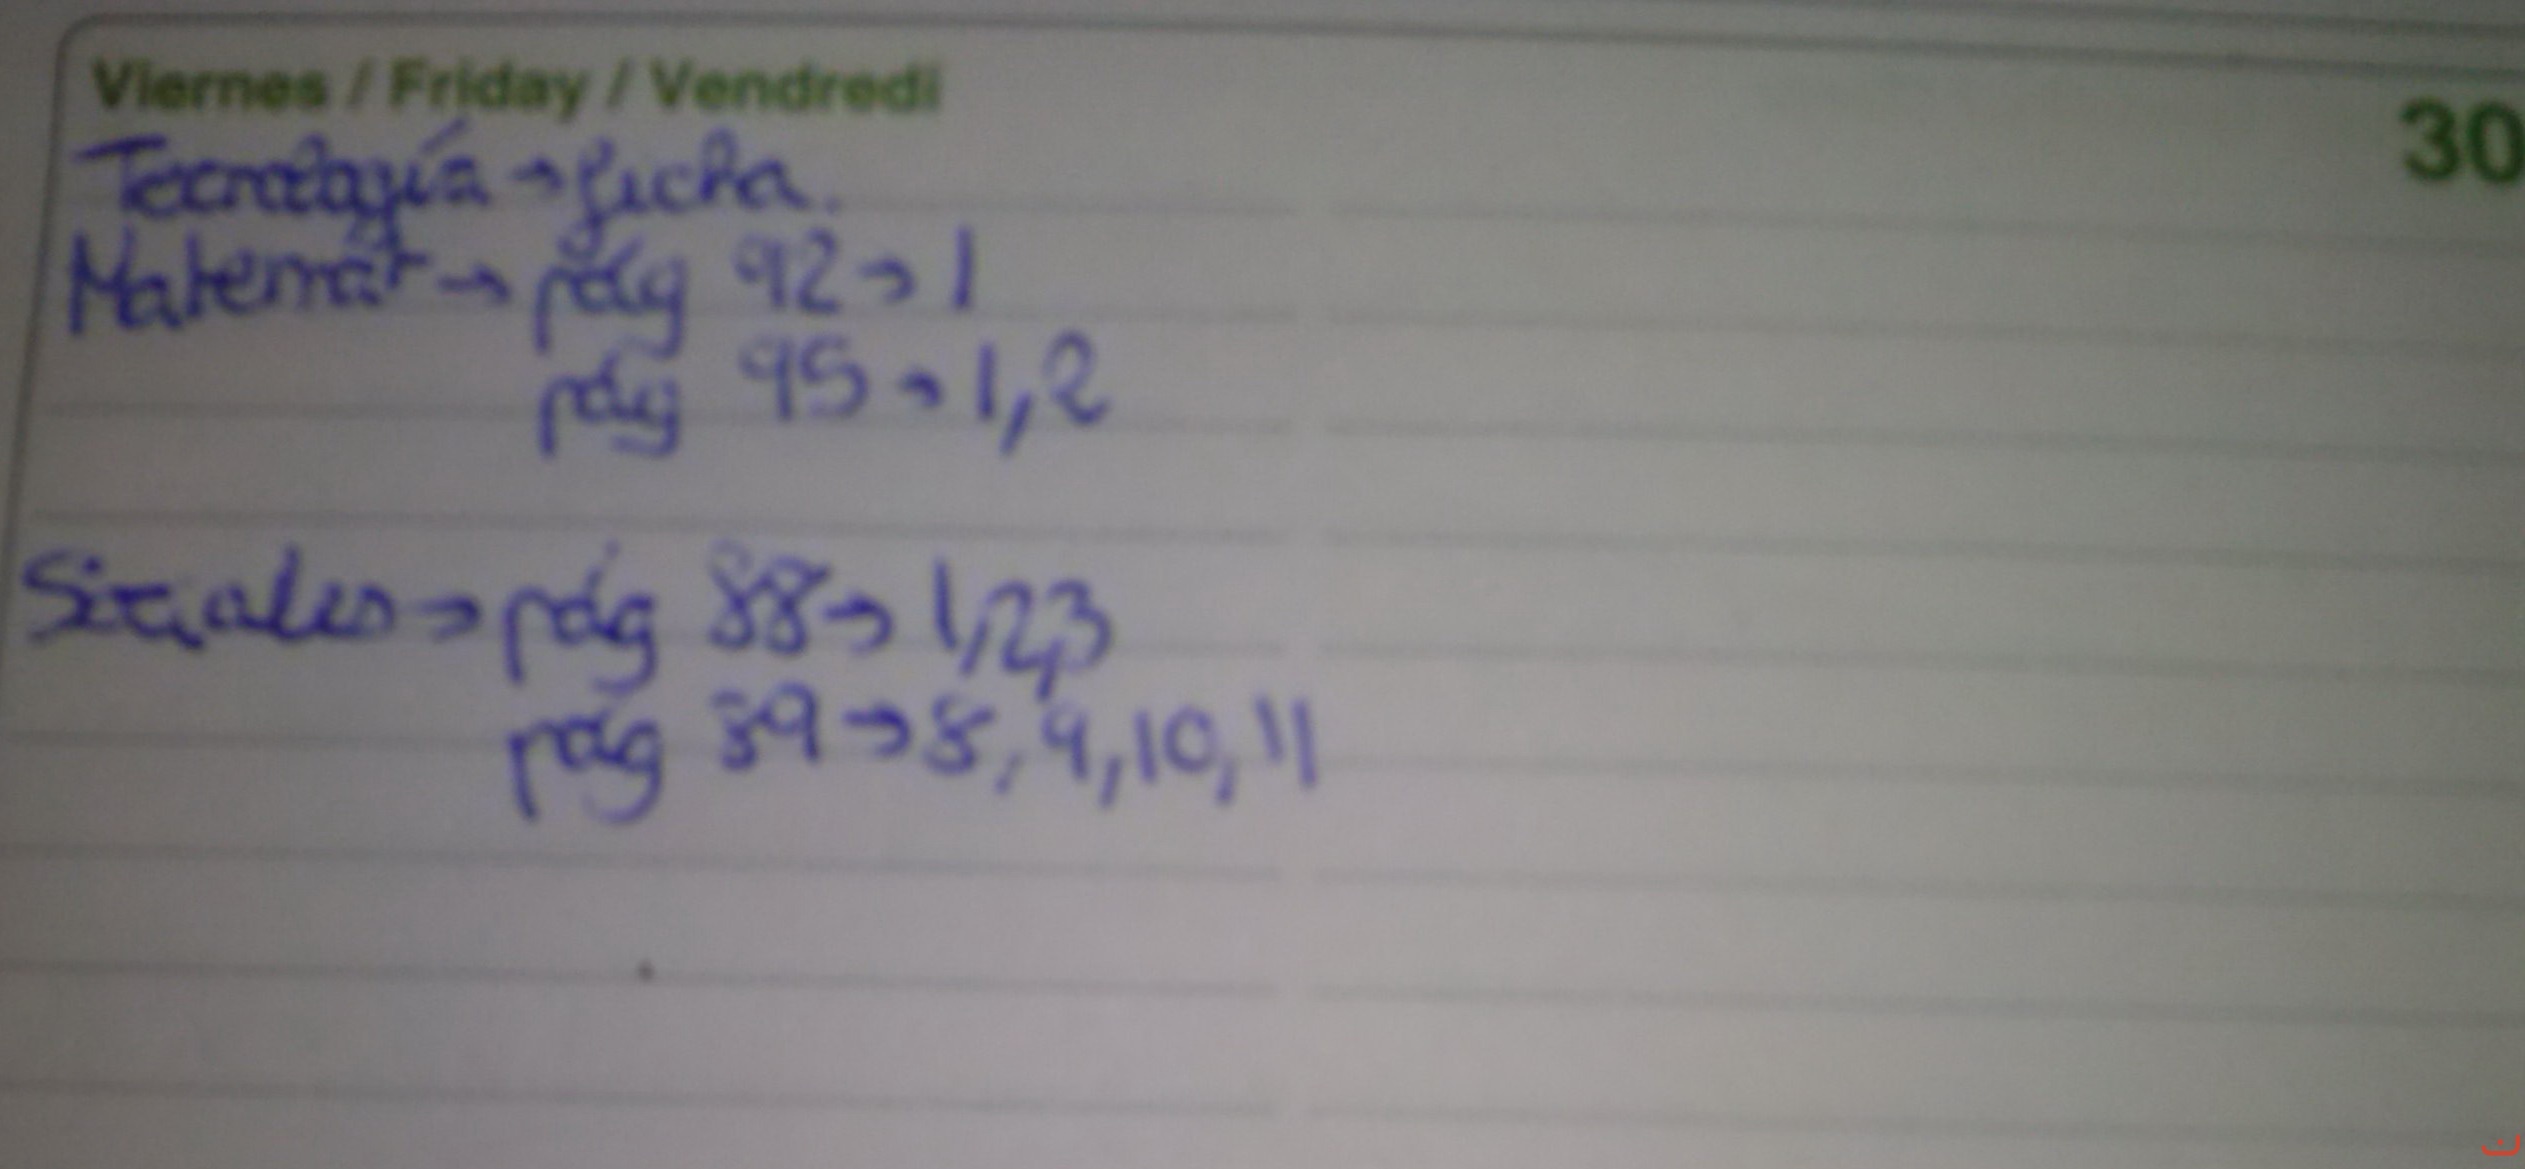 Viernes / Friday / Vendredi 30
Tecnología → ficha.
Matemát → pág 92 → 1
pág 95 → 1,2
Sociales → pág 88 → 1,2,3
pág 89 → 8, 9, 10, 11